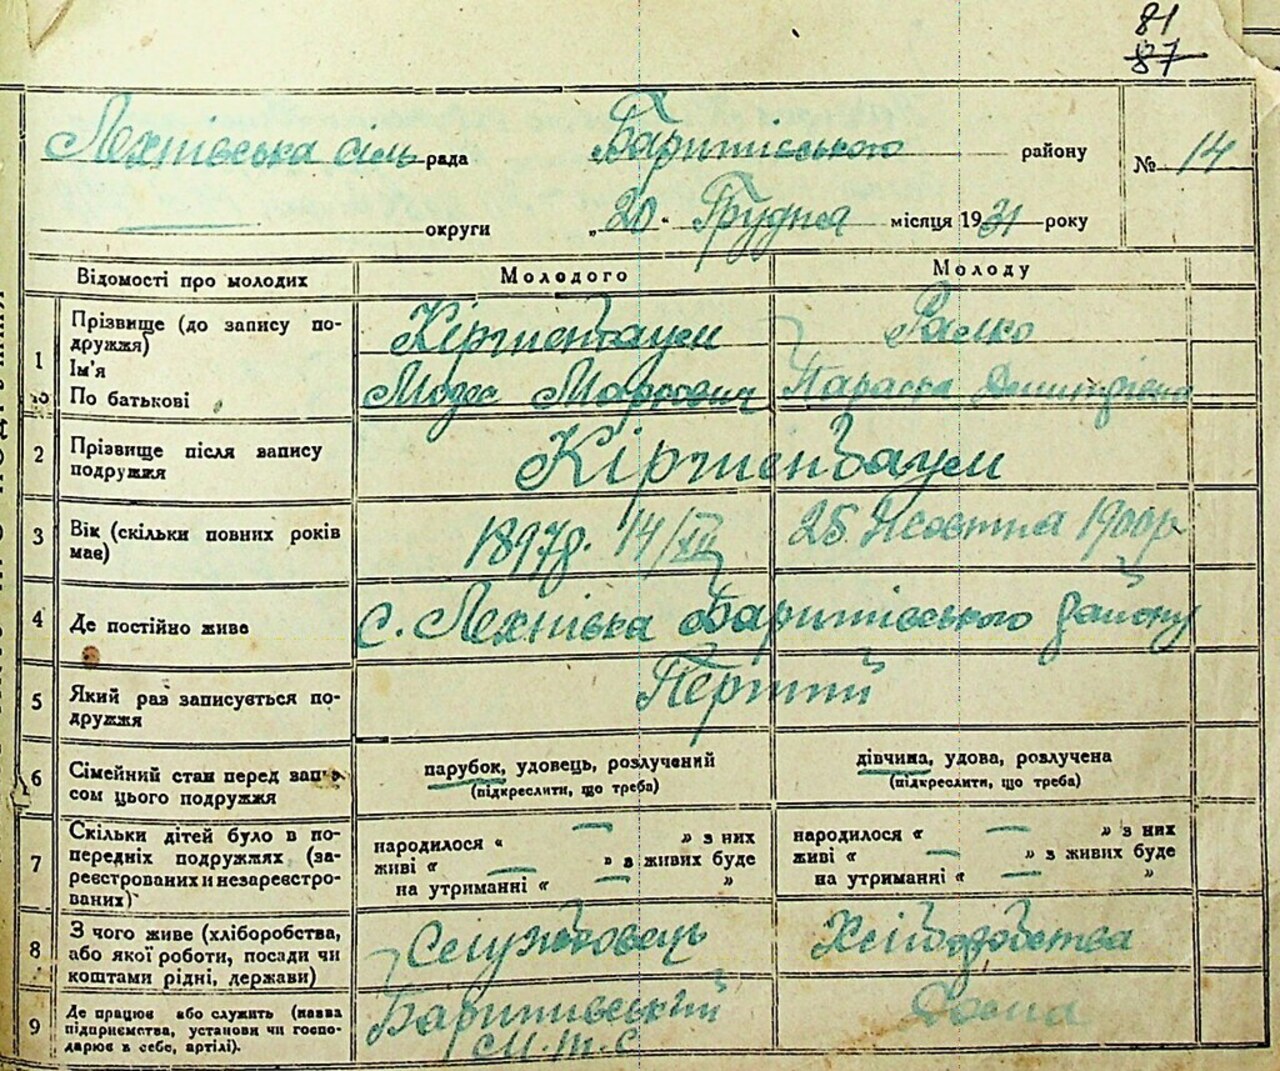 81
87
Лехнівська сіль рада Баришівського району № 14
округи „20" Грудня місяця 1931 року
Відомості про молодих Молодого Молоду
1 Прізвище (до запису подружжя) Кіршенбаум Расько
Ім'я
По батькові Мордко Маркович Параска Дмитрівна
2 Прізвище після запису подружжя Кіршенбаум
3 Вік (скільки повних років має) 1897р. 14/XII 25 Жовтня 1900р
4 Де постійно живе с. Лехнівка Баришівського району
5 Який раз записується подружжя Перший
6 Сімейний стан перед записом цього подружжя парубок, удовець, розлучений дівчина, удова, розлучена
(підкреслити, що треба) (підкреслити, що треба)
7 Скільки дітей було в попередніх подружжях (зареєстрованих и незареєстрованих) народилося « — » з них народилося « — » з них
живі « — » з живих буде живі « — » з живих буде
на утриманні « — » на утриманні « — »
8 З чого живе (хліборобства, або якої роботи, посади чи коштами рідні, держави) Службовець Хліборобства
9 Де працює або служить (назва підприємства, установи чи господарює в себе, артілі). Баришівський Дома
М.т.С